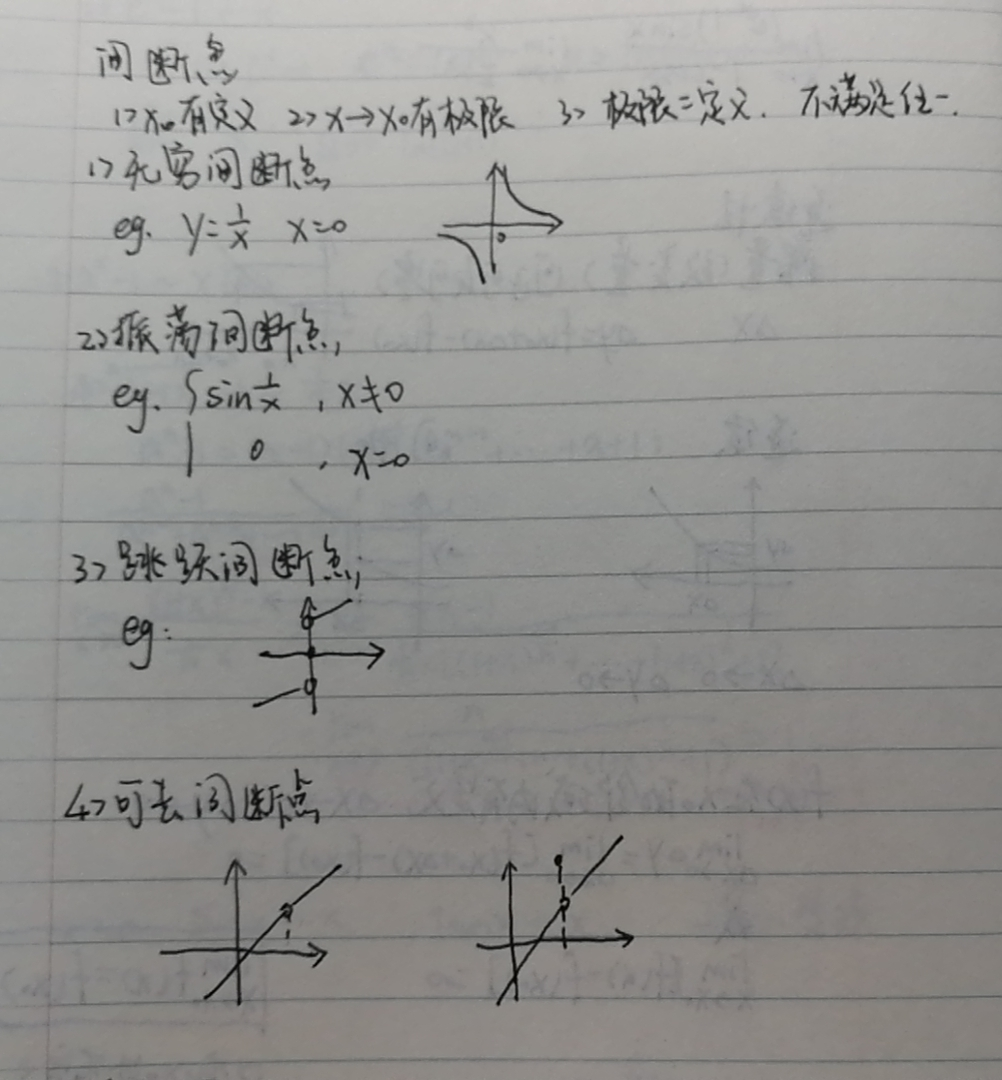 间断点
1> x₀有定义 2> x→x₀有极限 3> 极限=定义. 不满足任一.
1> 无穷间断点
eg. y=1/x x=0
0
2> 振荡间断点,
eg. { sin 1/x , x≠0
0 , x=0
3> 跳跃间断点,
eg:
4> 可去间断点